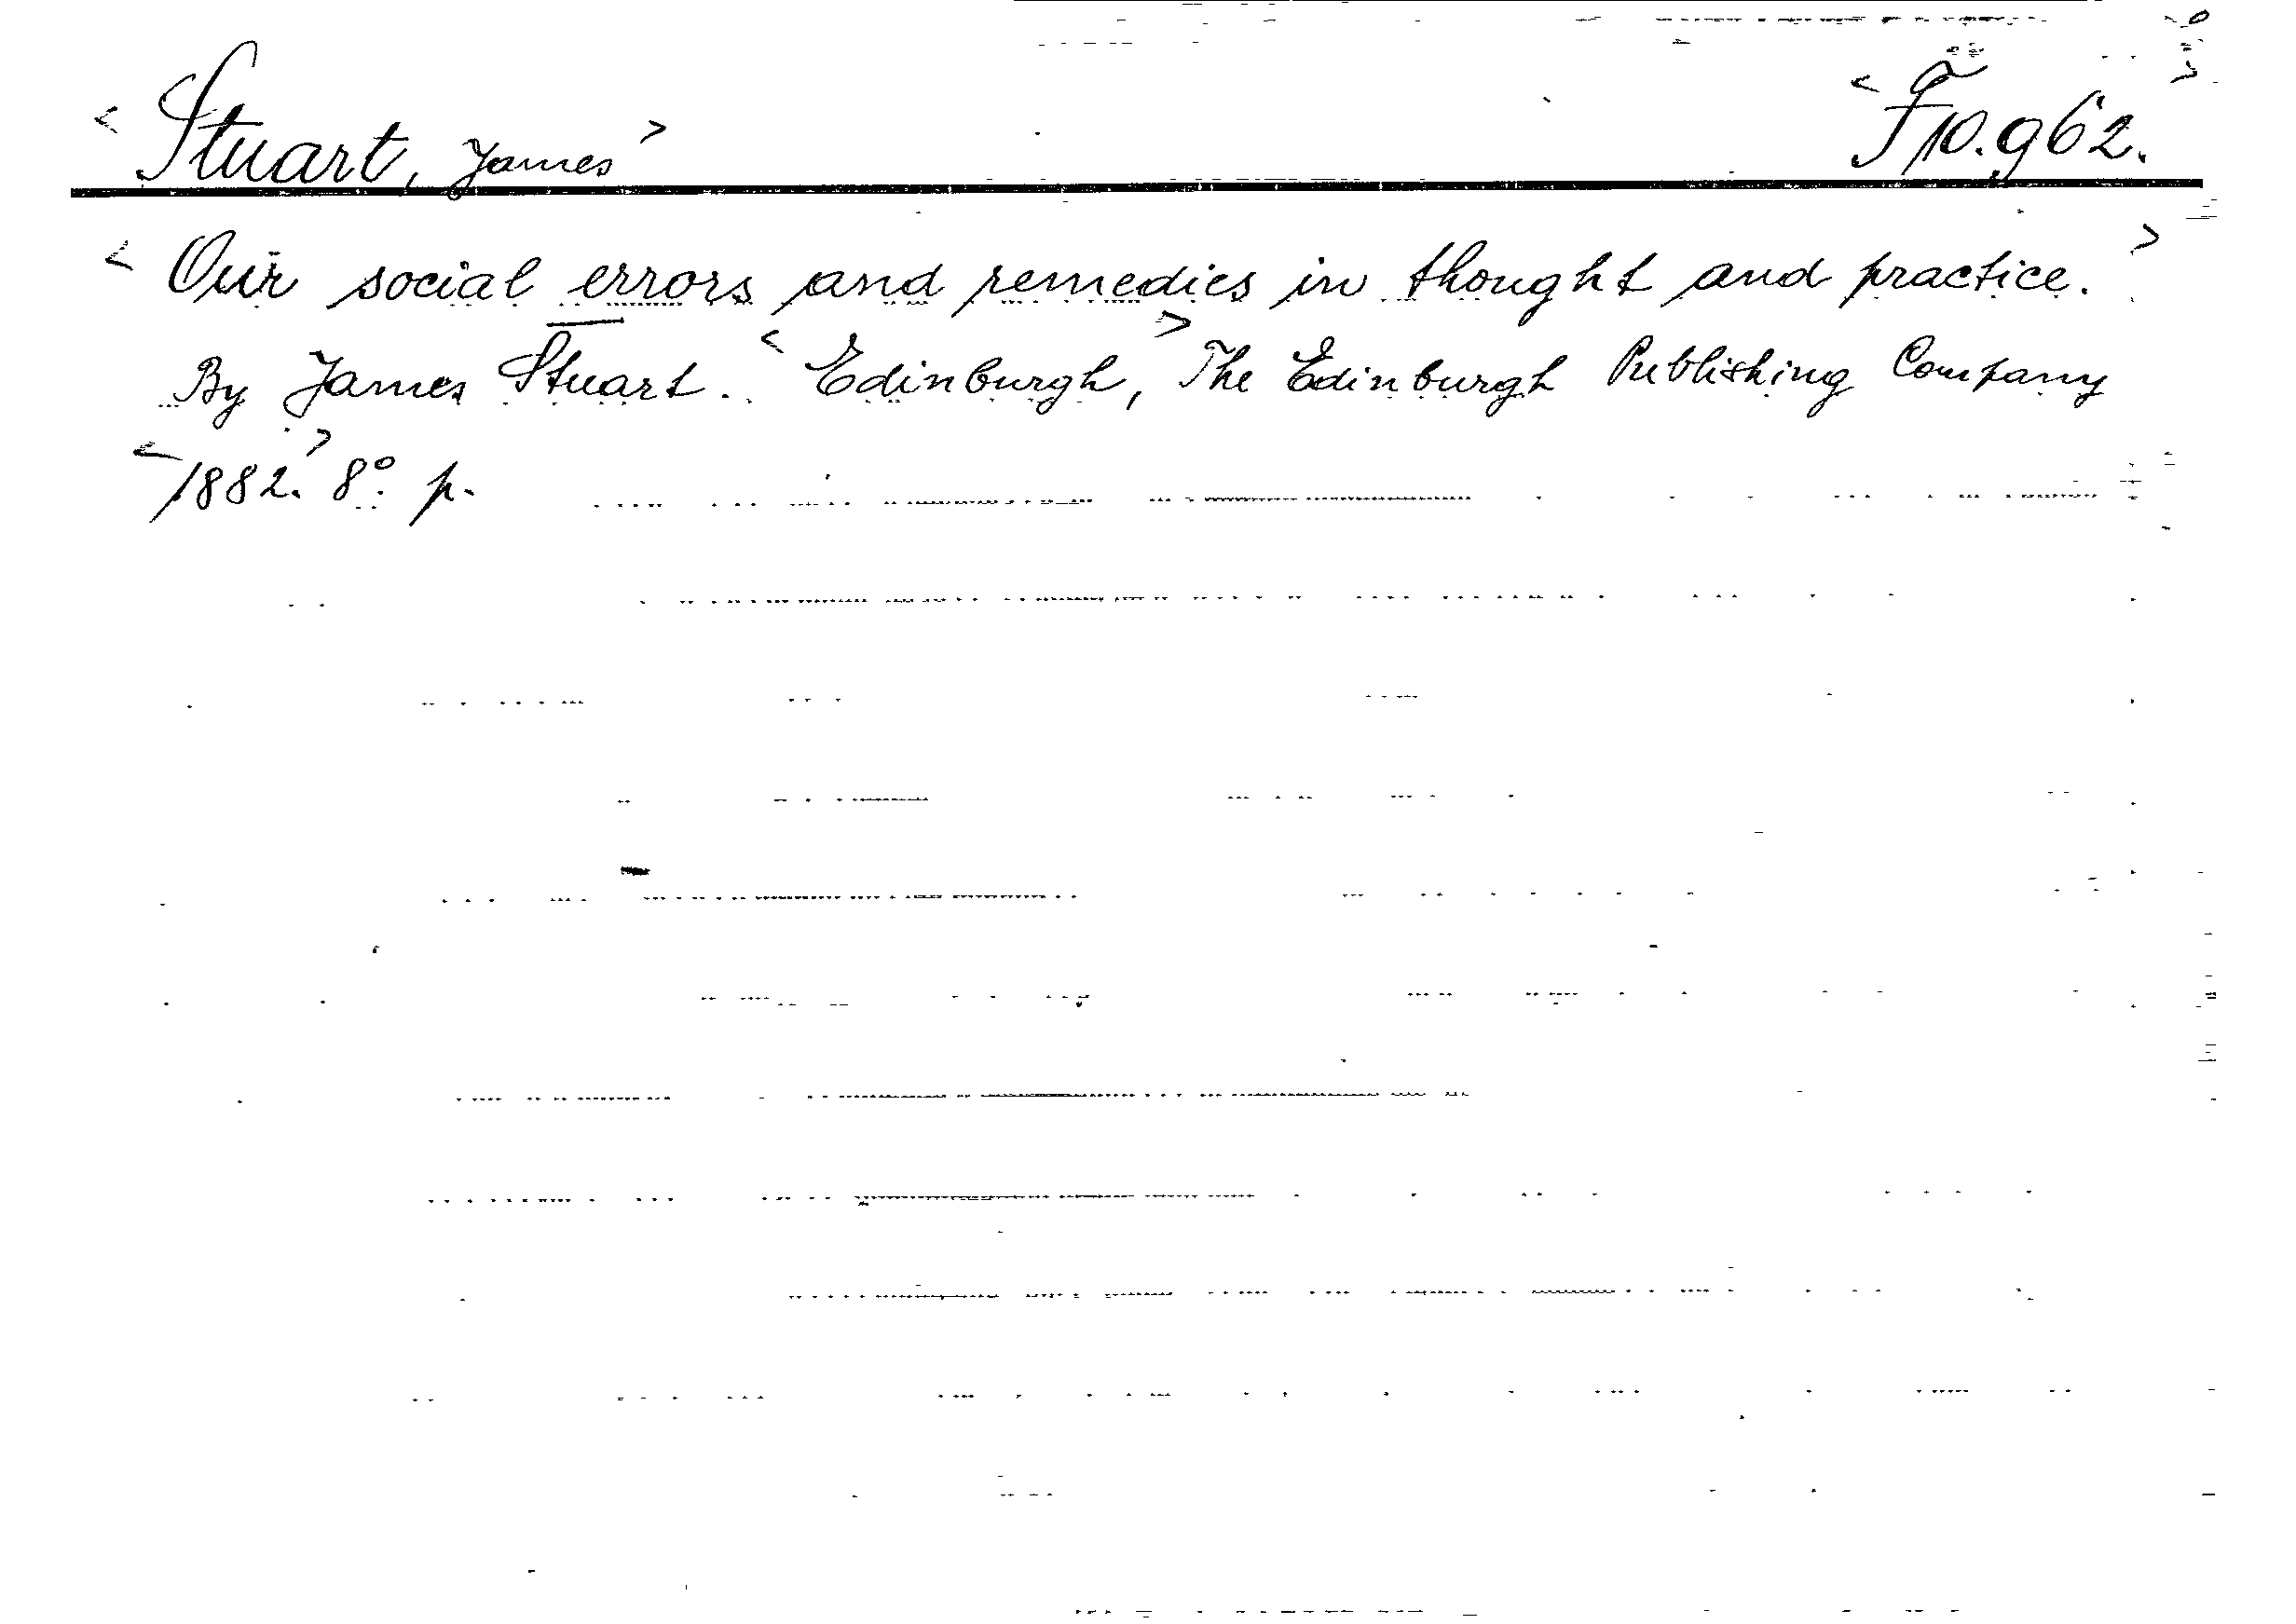 < Stuart, James > < F10.962. >
< Our social errors and remedies in thought and practice. >
By James Stuart. < Edinburgh, > The Edinburgh Publishing Company
< 1882. > 8°. p.